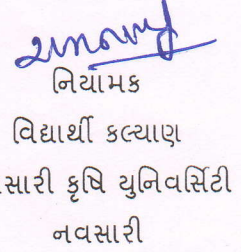 નિયામક
વિદ્યાર્થી કલ્યાણ
સારી કૃષિ યુનિવર્સિટી
નવસારી